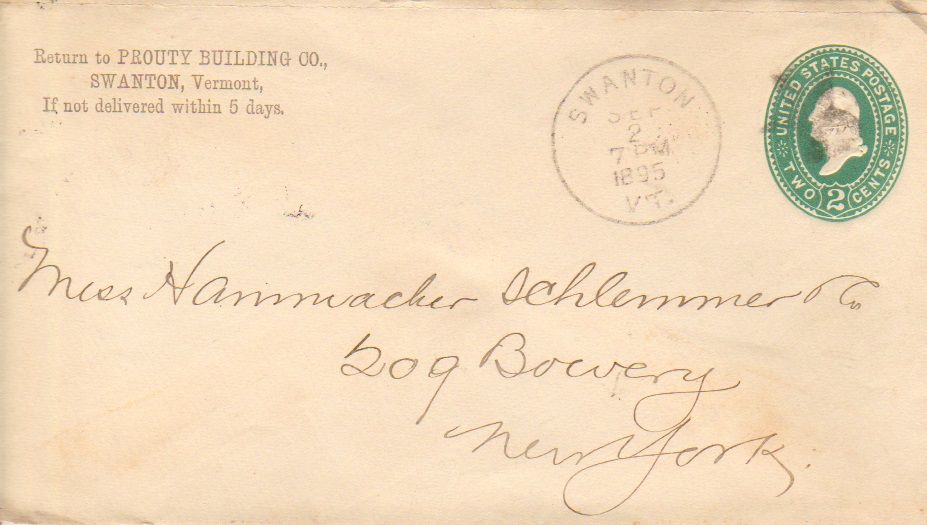 Return to PROUTY BUILDING CO.,
SWANTON, Vermont,
If not delivered within 5 days.
SWANTON
SEP
2
7 PM
1895
VT.
UNITED STATES POSTAGE
TWO 2 CENTS
Mess Hammacher Schlemmer & Co
209 Bowery
New York.